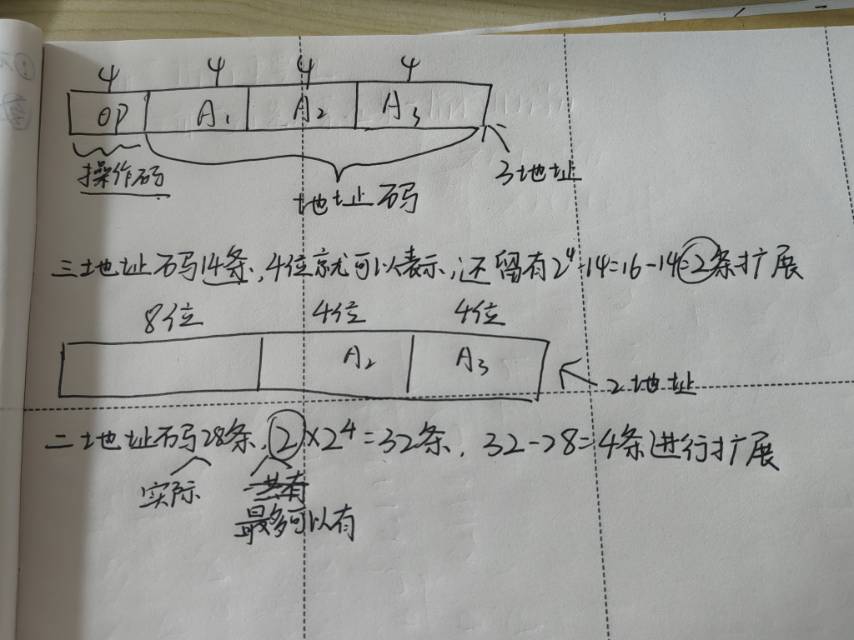 4 4 4 4
OP A₁ A₂ A₃
操作码 地址码 3地址
三地址码14条,4位就可以表示,还留有2⁴-14=16-14=2条扩展
8位 4位 4位
A₂ A₃
2地址
二地址码28条,2×2⁴=32条,32-28=4条进行扩展
实际 共有
最多可以有